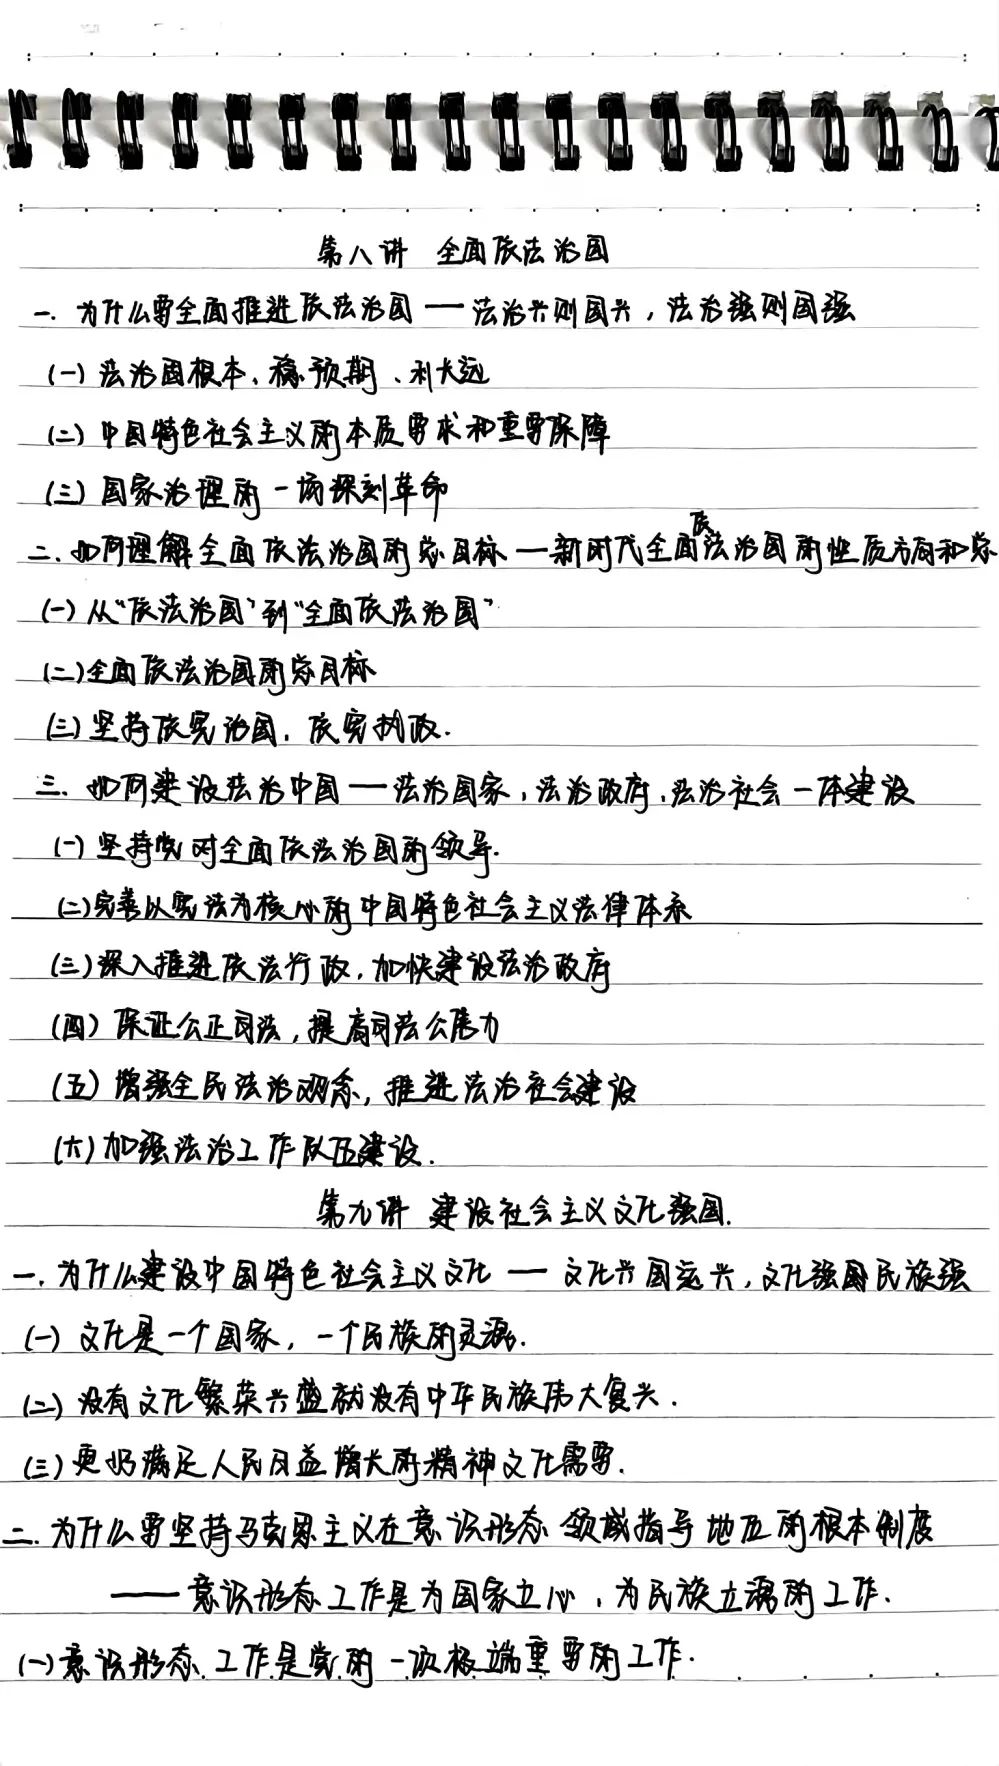 第八讲 全面依法治国
一. 为什么要全面推进依法治国 — 法治兴则国兴, 法治强则国强
(一) 法治固根本、稳预期、利长远
(二) 中国特色社会主义的本质要求和重要保障
(三) 国家治理的一场深刻革命
二. 如何理解全面依法治国的总目标 — 新时代全面依法治国的性质方向和总
(一) 从“依法治国”到“全面依法治国”
(二) 全面依法治国的总目标
(三) 坚持依宪治国, 依宪执政.
三. 如何建设法治中国 — 法治国家, 法治政府, 法治社会一体建设
(一) 坚持党对全面依法治国的领导.
(二) 完善以宪法为核心的中国特色社会主义法律体系
(三) 深入推进依法行政, 加快建设法治政府
(四) 保证公正司法, 提高司法公信力
(五) 增强全民法治观念, 推进法治社会建设
(六) 加强法治工作队伍建设.
第九讲 建设社会主义文化强国.
一. 为什么建设中国特色社会主义文化 — 文化兴国运兴, 文化强国民族强
(一) 文化是一个国家, 一个民族的灵魂.
(二) 没有文化繁荣兴盛就没有中华民族伟大复兴.
(三) 更好满足人民日益增长的精神文化需要.
二. 为什么要坚持马克思主义在意识形态领域指导地位的根本制度
—— 意识形态工作是为国家立心, 为民族立魂的工作.
(一) 意识形态工作是党的一项极端重要的工作.